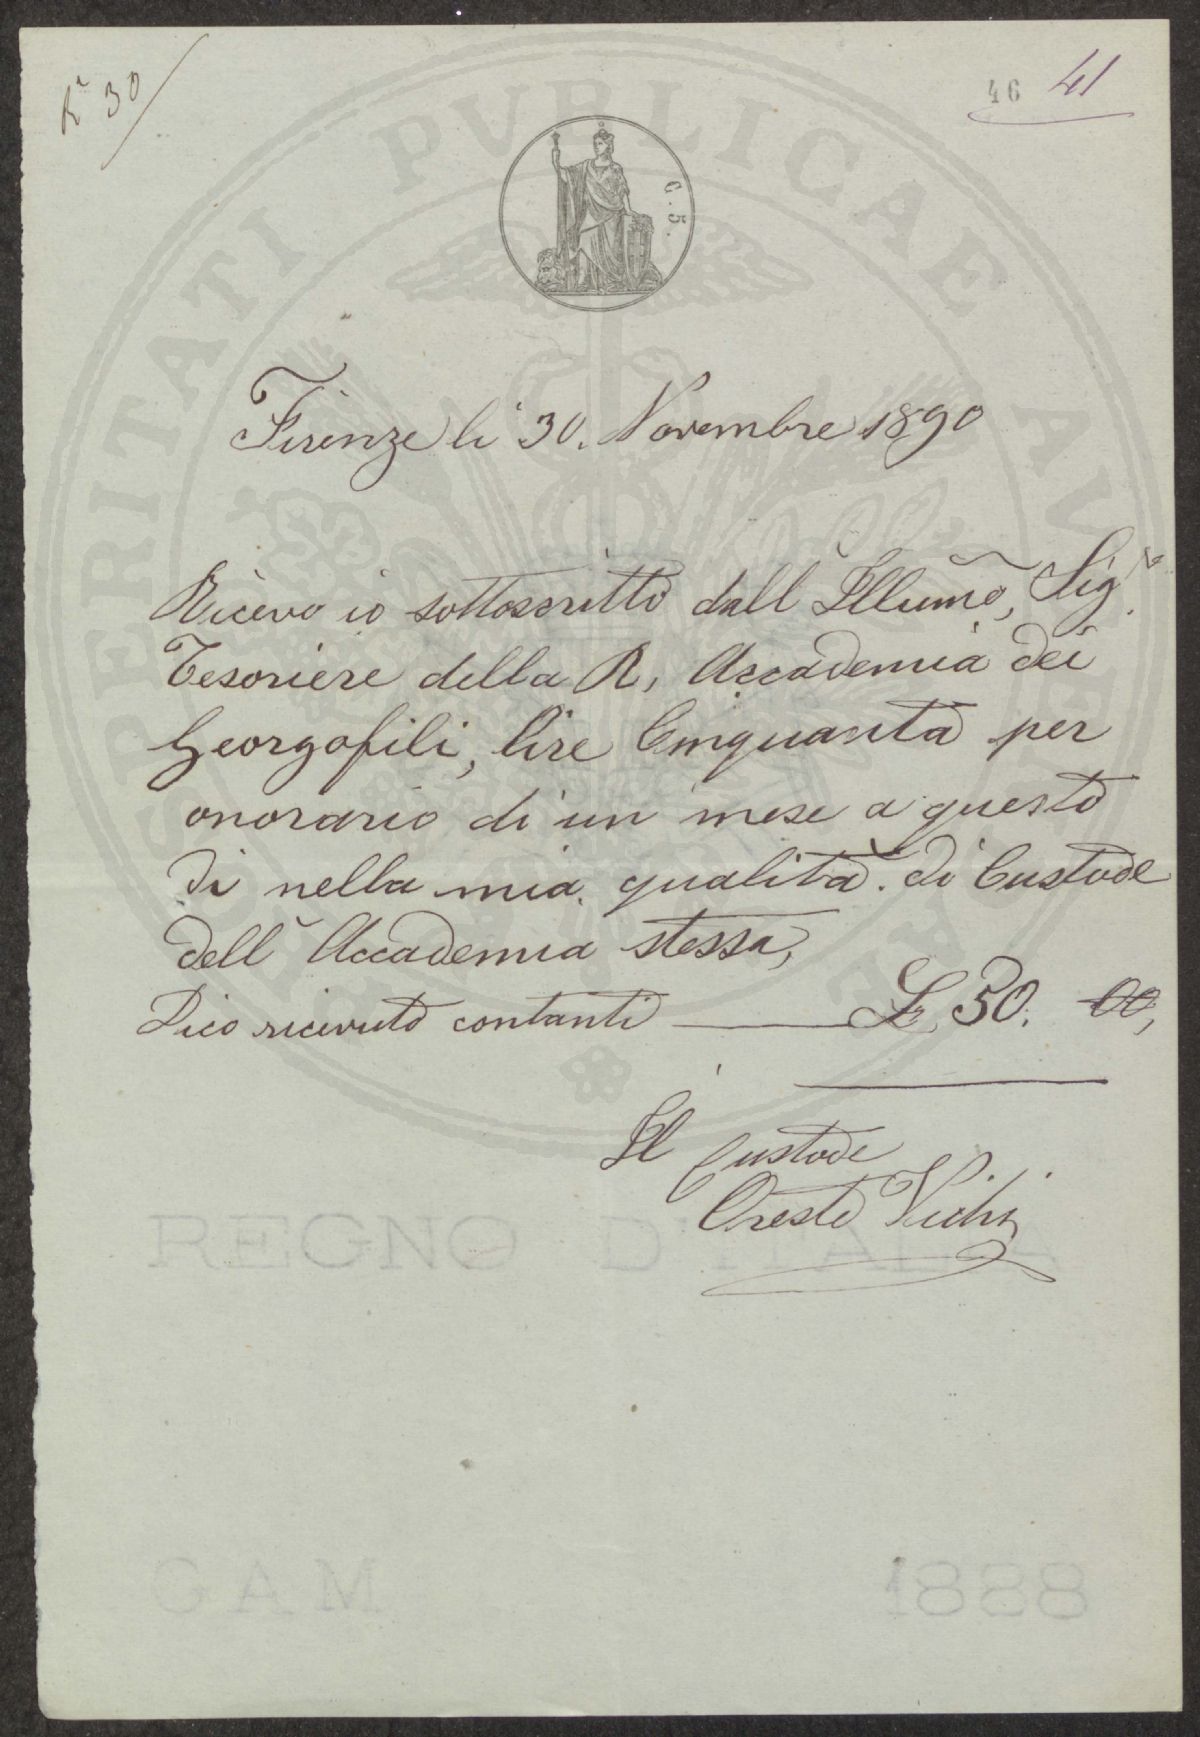 Ra 30
46 41
PROSPERITATI PVBLICAE AVGENDAE
C. 5.
Firenze li 30. Novembre 1890
Ricevo io sottoscritto dall' Illumo, Sigr.
Tesoriere della R, Accademia dei
Georgofili, lire Cinquanta per
onorario di un mese a questo
di nella mia qualità di Custode
dell' Accademia stessa,
Dico ricevuto contanti L 50. 00,
Il Custode
Oreste Vichi
REGNO D'ITALIA
GAM 1888